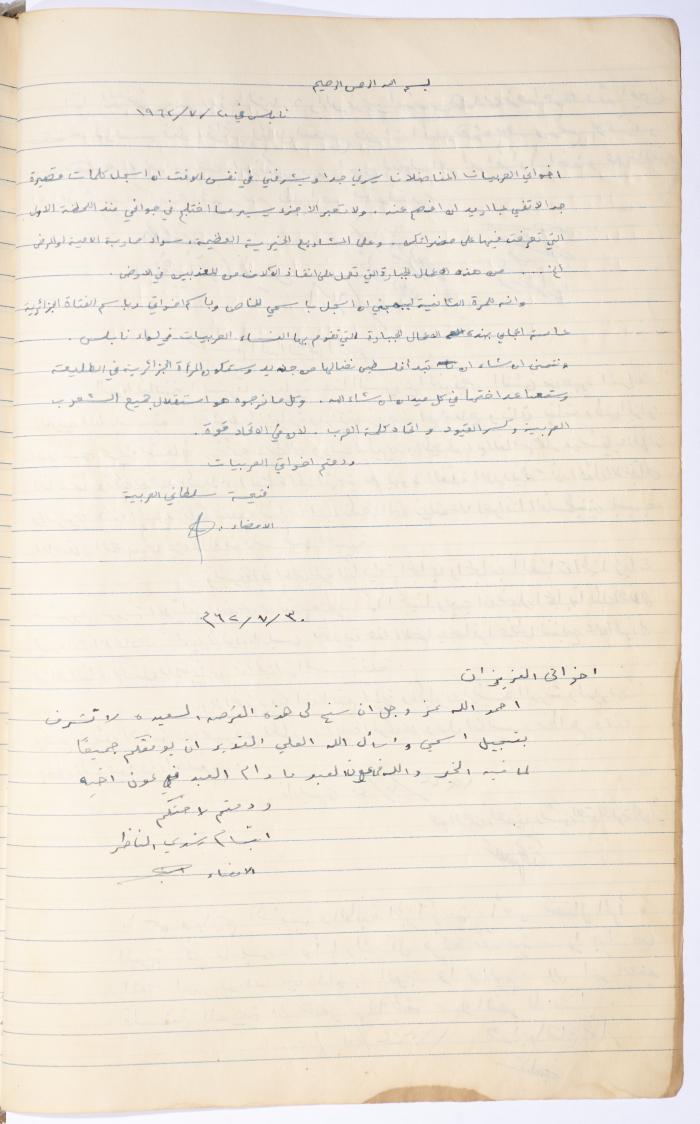 بسم الله الرحمن الرحيم
نابلس في ٢٠/٧/١٩٦٢
اخواتي العربيات المناضلات يسرني جدا ويشرفني في نفس الوقت ان اسجل كلمات قصيرة
جدا لا تفي عما اريد ان افصح عنه. ولا تعبر الا جزء يسير مما اختلج في جوانحي منذ اللحظة الاولى
التي تعرفت فيها على حضراتكن. وعلى المشاريع الخيرية العظيمة، سواء محاربة الامية او المرض
الخ .... من هذه الاعمال الجبارة التي تعمل على انقاذ الآلاف من المعذبين في الارض.
وانه للمرة الثانية ان اسجل باسمي الخاص وباسم اخواتي وباسم الفتاة الجزائرية
عامة اعجابي بهذه الاعمال الجبارة التي تقوم بها النساء العربيات في لواء نابلس.
ونتمنى ان شاء الله تبدأ فلسطين نضالها من جديد وستكون المرأة الجزائرية في الطليعة
وستساعد اختها في كل ميدان ان شاء الله. وكل ما نرجوه هو استقلال جميع الشعوب
العربية وكسر القيود واتحاد كلمة العرب. لان في الاتحاد قوة.
ودمتم اخواتي العربيات
فتيحة سلطاني العربية
الامضاء.
٣٠/٧/٦٢م
اخواتي العزيزات
احمد الله عز وجل ان سنح لي هذه الفرصه السعيده لاتشرف
بتسجيل اسمي واسأل الله العلي القدير ان يوفقكم جميعاً
لما فيه الخير والله في عون العبد ما دام العبد في عون اخيه
ودمتم لاختكم
ابتسام رشدي الناظر
الامضاء